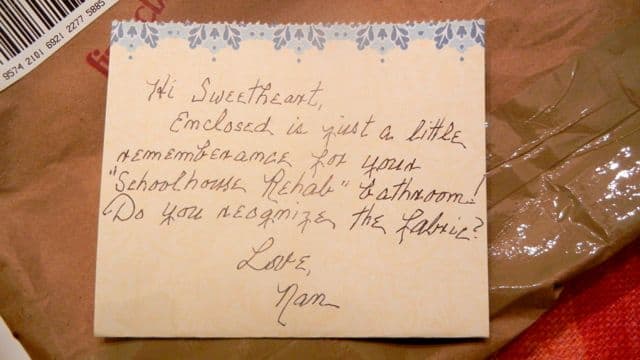 9574 2101 6921 2277 5885
Hi Sweetheart,
Enclosed is just a little
rememberance for your
"Schoolhouse Rehab" bathroom!
Do you reognize the fabric?
Love,
Nan